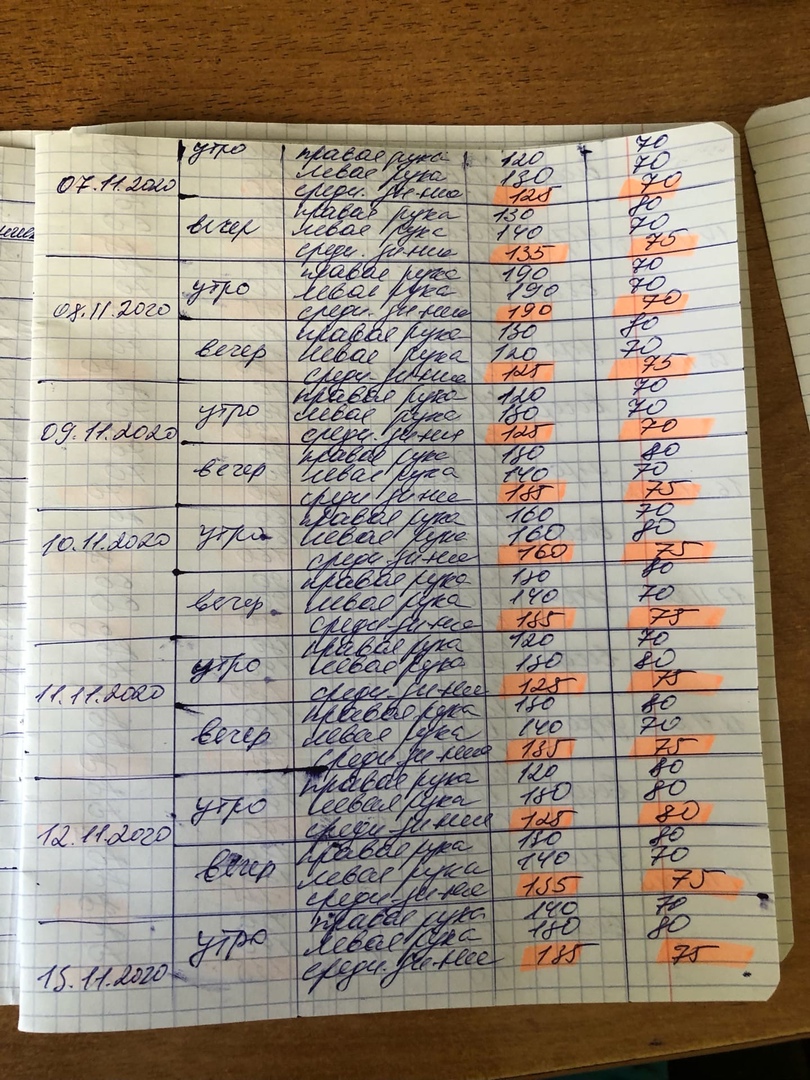 07.11.2020 утро правая рука 120 70
левая рука 130 70
средн. зн-ние 125 70
вечер правая рука 130 80
левая рука 140 70
средн. зн-ние 135 75
08.11.2020 утро правая рука 190 70
левая рука 190 70
средн. зн-ние 190 70
вечер правая рука 130 80
левая рука 120 70
средн. зн-ние 125 75
09.11.2020 утро правая рука 120 70
левая рука 130 70
средн. зн-ния 125 70
вечер правая рука 130 80
левая рука 140 70
средн. зн-ние 135 75
10.11.2020 утро правая рука 160 70
левая рука 160 80
средн. зн-ние 160 75
вечер правая рука 130 80
левая рука 140 70
средн. зн-ние 135 75
11.11.2020 утро правая рука 120 70
левая рука 130 80
средн. зн-ние 125 75
вечер правая рука 130 80
левая рука 140 70
средн. зн-ние 135 75
12.11.2020 утро правая рука 120 80
левая рука 130 80
средн. зн-ния 125 80
вечер правая рука 130 80
левая рука 140 70
средн. зн-ние 135 75
утро правая рука 140 70
левая рука 130 80
13.11.2020 средн. зн-ние 135 75